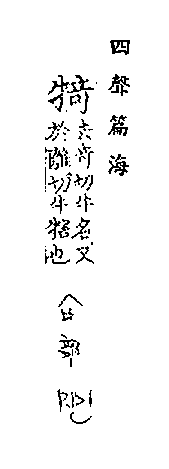 四聲篇海
犄去奇切牛名又
於離切牛犄也
部